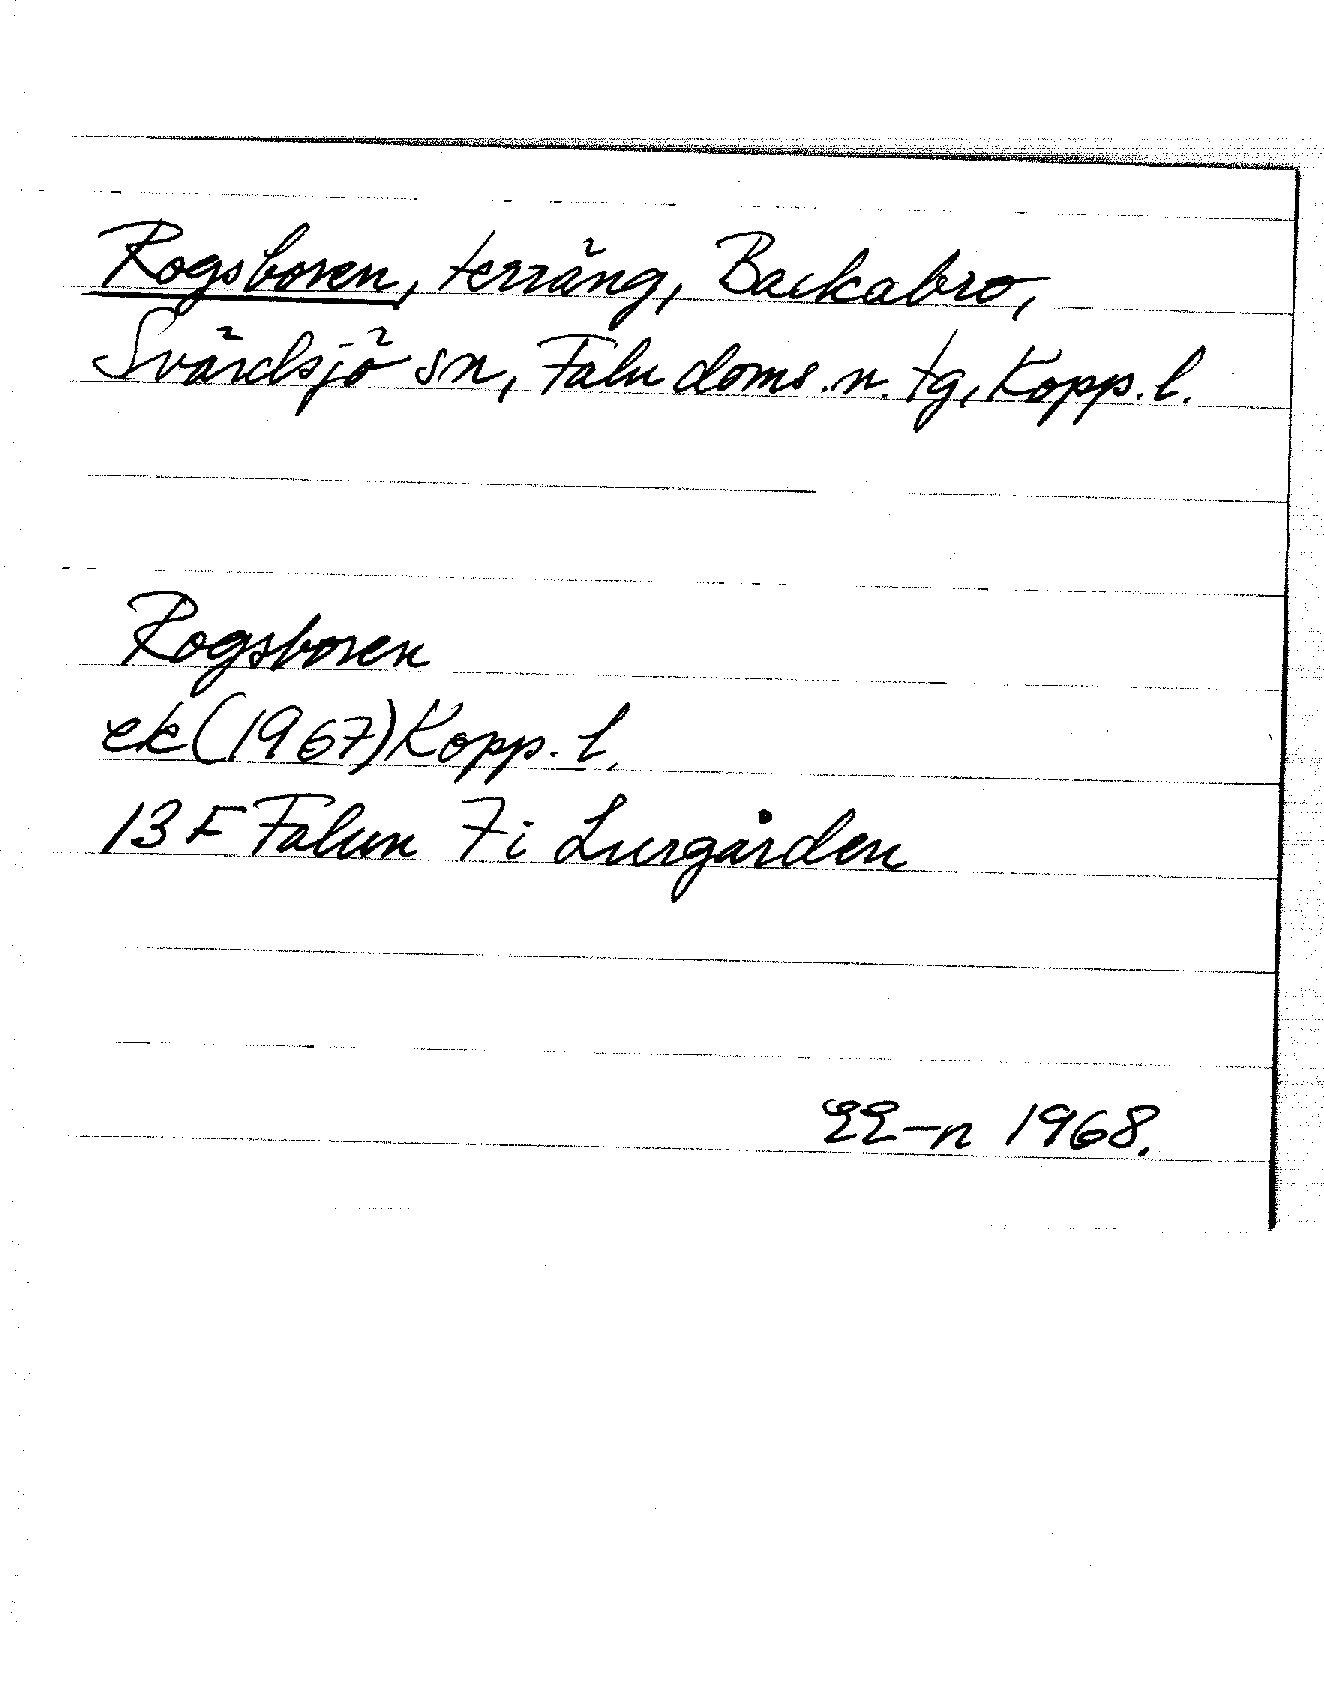 Rogsboren, terräng, Backabro,
Svärdsjö sn, Falu doms. n. tg, Kopp. l.
Rogsboren
ek (1967) Kopp. l.
13 F Falun 7i Lurgården
EE-n 1968.